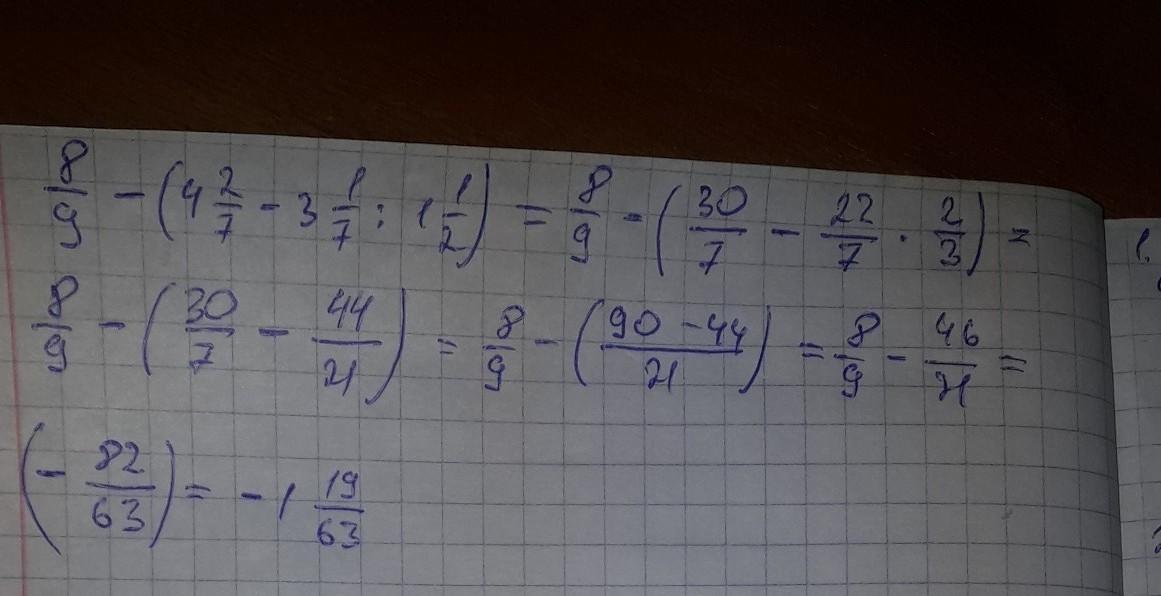 8/9 - (4 2/7 - 3 1/7 : 1 1/2) = 8/9 - (30/7 - 22/7 · 2/3) =
8/9 - (30/7 - 44/21) = 8/9 - (90 - 44/21) = 8/9 - 46/21 =
(- 82/63) = - 1 19/63
1.